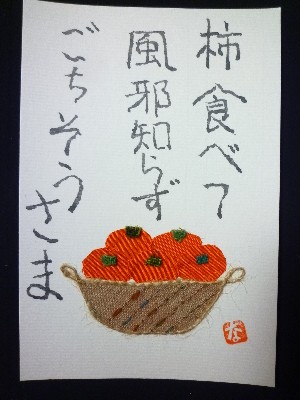 柿食べて
風邪知らず
ごちそうさま
な